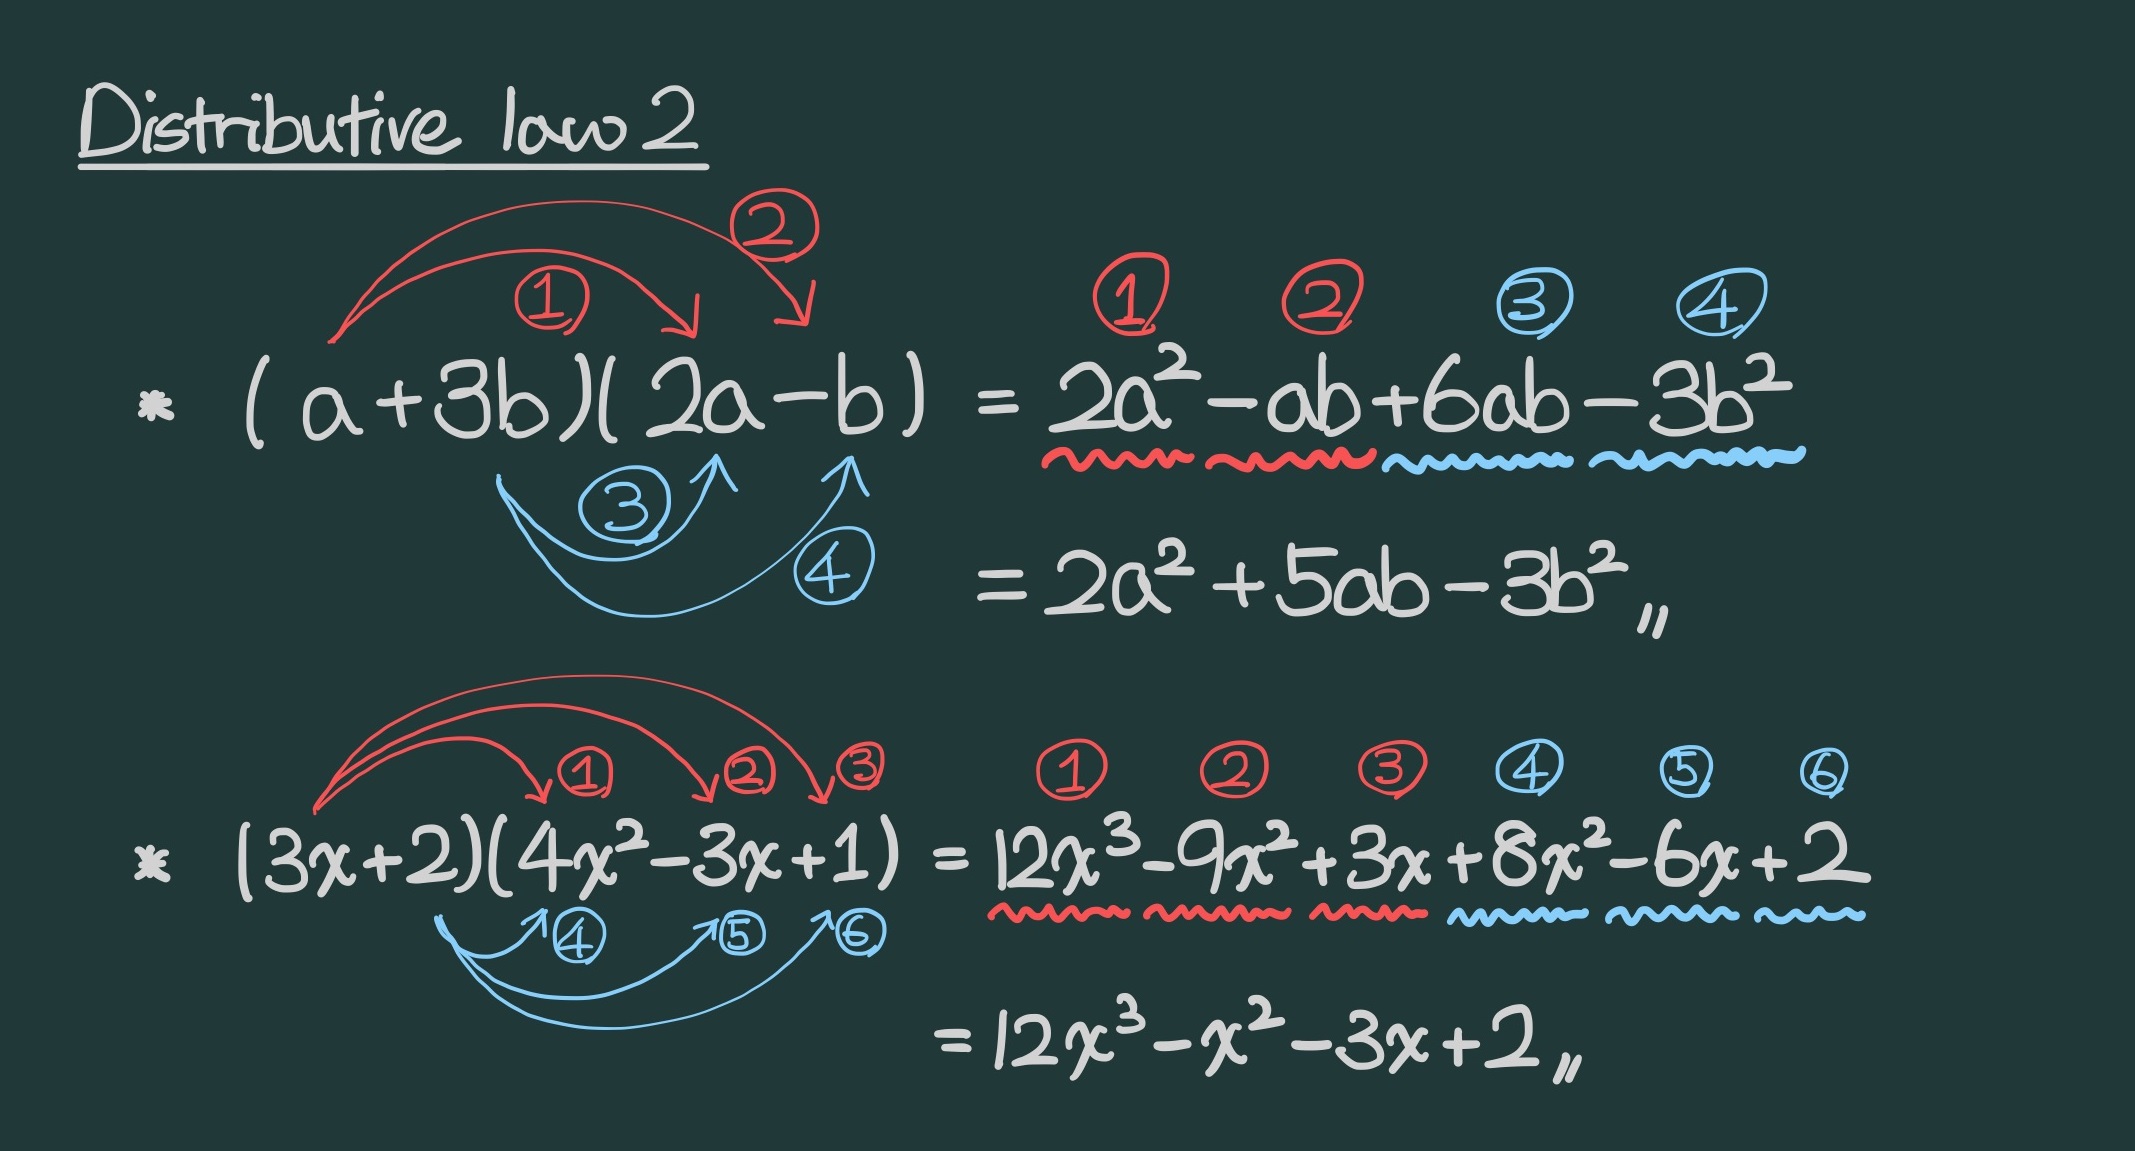 Distributive law 2
②
① ① ② ③ ④
* (a+3b)(2a-b) = 2a²-ab+6ab-3b²
③
④ = 2a²+5ab-3b²,,
① ② ③ ① ② ③ ④ ⑤ ⑥
* (3x+2)(4x²-3x+1) = 12x³-9x²+3x+8x²-6x+2
④ ⑤ ⑥
= 12x³-x²-3x+2,,